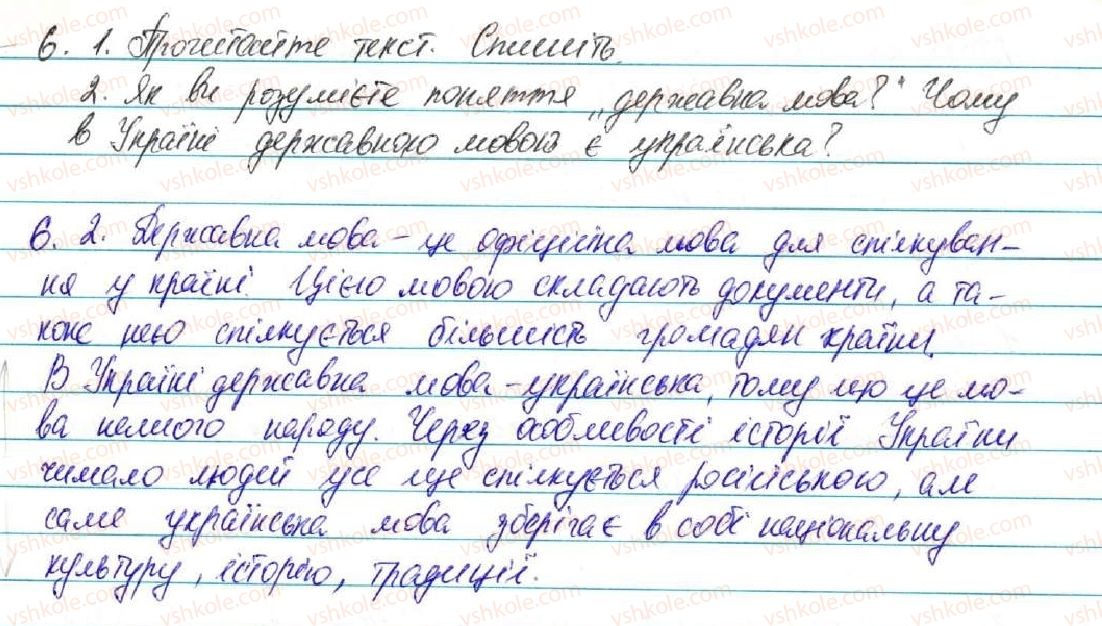 6. 1. Прочитайте текст. Спишіть.
2. Як ви розумієте поняття „державна мова?" Чому
в Україні державною мовою є українська?
6. 2. Державна мова – це офіційна мова для спілкуван–
ня у країні. Цією мовою складають документи, а та–
кож нею спілкується більшість громадян країни.
В Україні державна мова – українська, тому що це мо–
ва нашого народу. Через особливості історії України
чимало людей усе ще спілкується російською, але
саме українська мова зберігає в собі національну
культуру, історію, традиції.